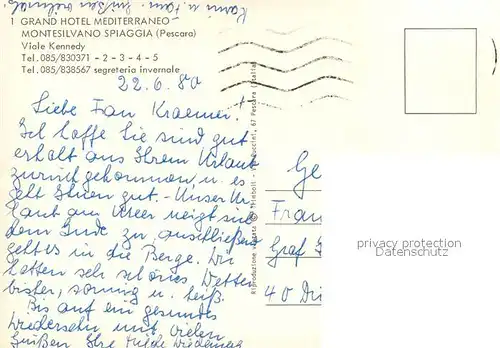 1 GRAND HOTEL MEDITERRANEO
MONTESILVANO SPIAGGIA (Pescara)
Viale Kennedy
Tel. 085/830371 - 2 - 3 - 4 - 5
Tel. 085/838567 segreteria invernale
22.6.80
Liebe Frau Kraemer!
Ich hoffe Sie sind gut
erhalt aus Ihrem Urlaub
zurückgekommen, u. es
geht Ihnen gut. - Unser Ur-
laub am Meer neigt sich
dem Ende zu, anschließend
geht es in die Berge. Wir
hatten sehr schönes Wetter
bisher, sonnig u. heiß.
Bis auf ein gesundes
Wiedersehn und vielen
Grüßen Ihre
Riproduzione vietata
67 Pescara (Italia)
Frau
Graf
40
privacy protection
Datenschutz